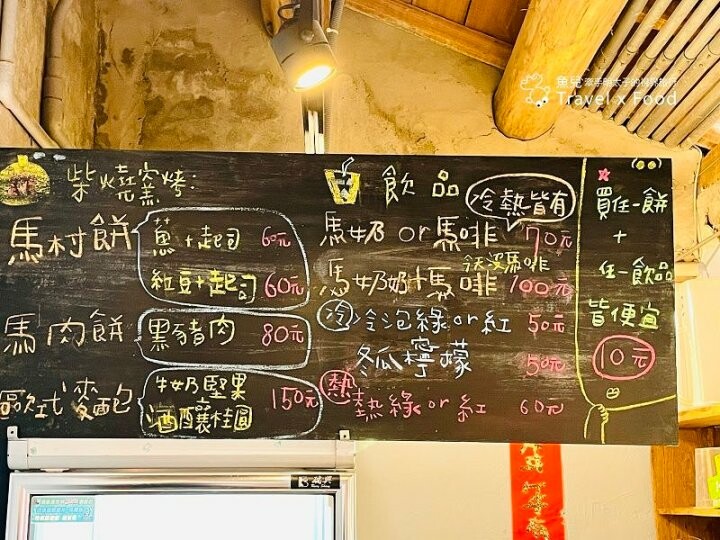 柴燒窯烤:
馬村餅 蔥+起司 60元
紅豆+起司 60元
馬肉餅 黑豬肉 80元
歐式麥麵包 牛奶堅果
酒釀桂圓 150元
飲品
冷熱皆有
馬奶 or 馬啡 70元
今天沒馬啡
馬奶奶+馬啡 100元
冷 冷泡綠 or 紅 50元
冬瓜檸檬 50元
熱 熱綠 or 紅 60元
買任一餅
+
任一飲品
皆便宜
10元
Travel x Food